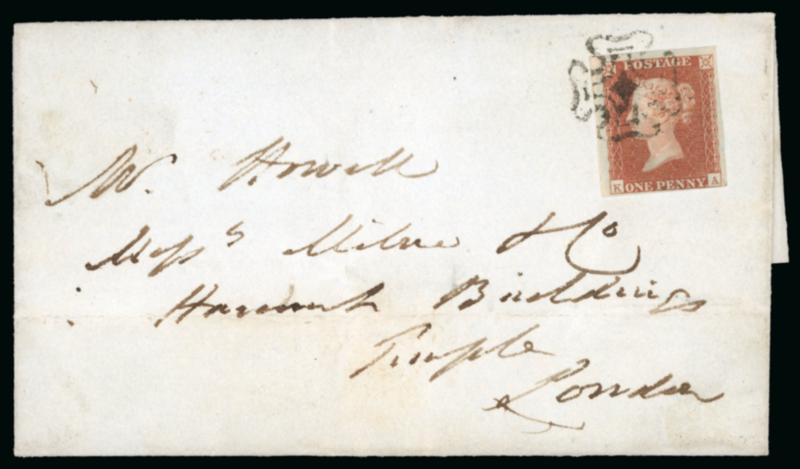 POSTAGE
K ONE PENNY A
Mr. Howell
Messrs Milne & Co
Harcourt Buildings
Temple
London